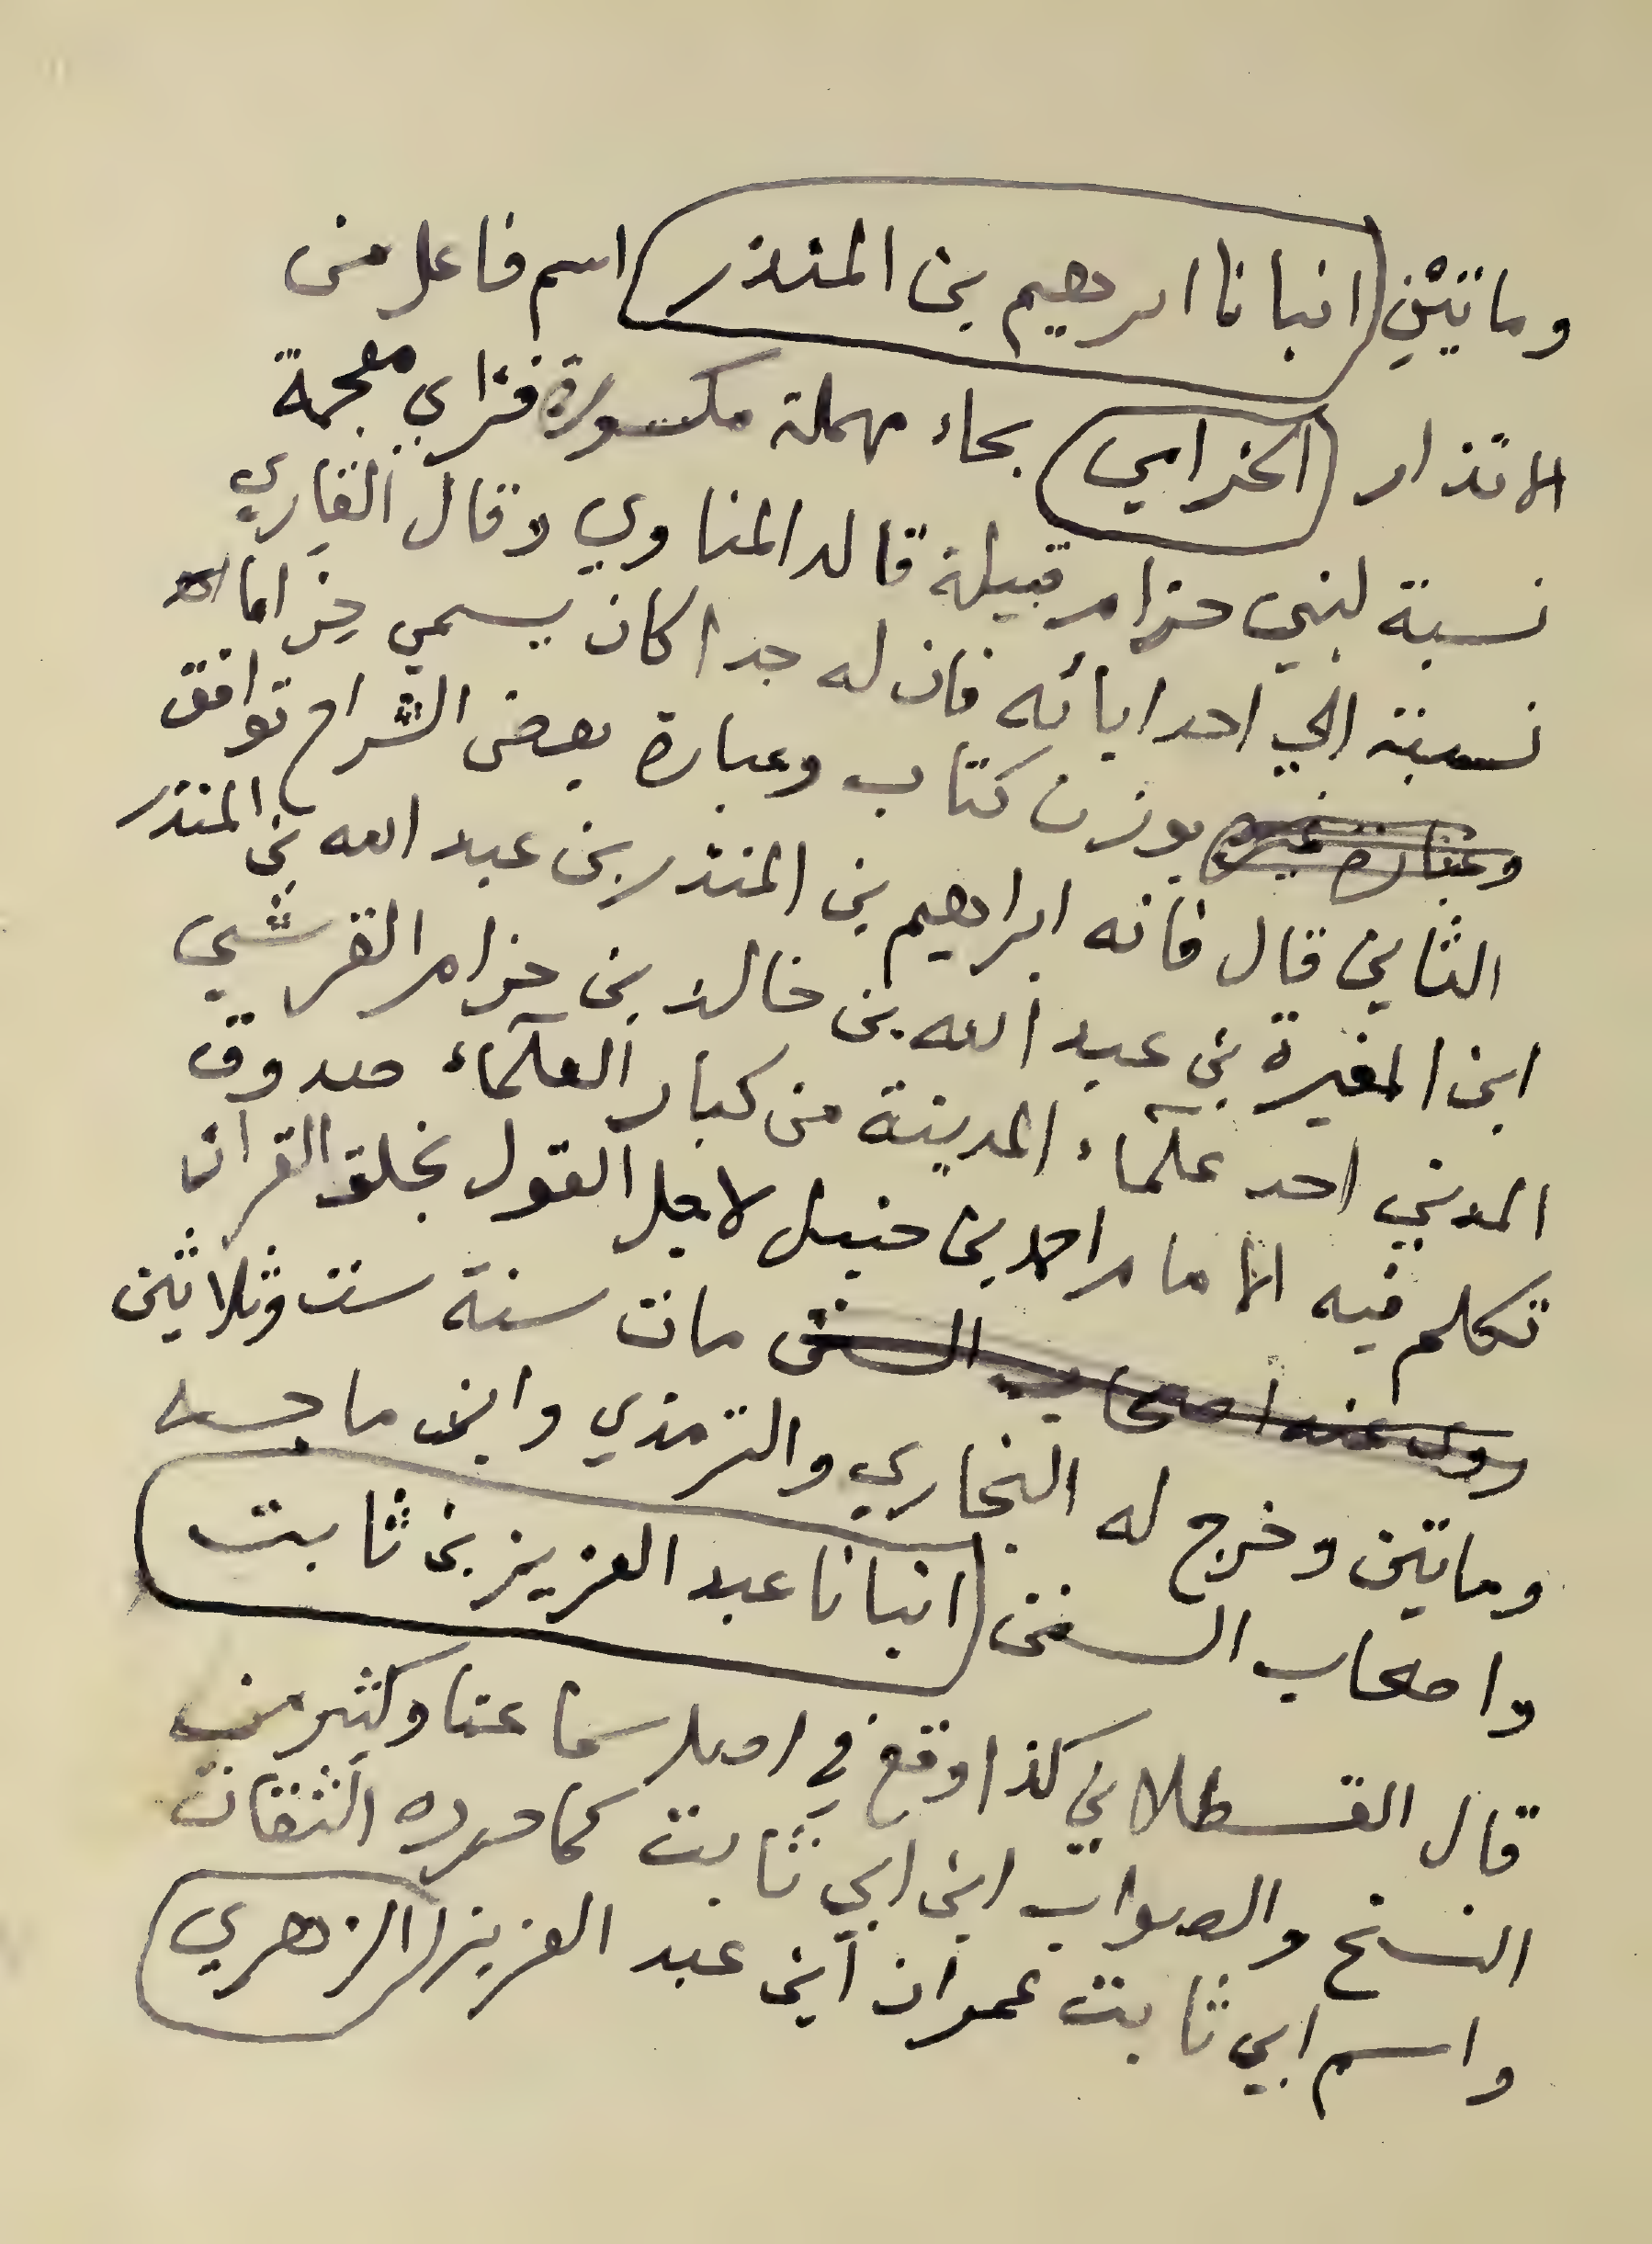 وماتيْنِ (انبانا ابرهيم بن المنذر) اسم فاعل من
الانذار (الحزامي) بحاء مهملة مكسورة فزاي معجمة
نسبة لبني حزام قبيلة قاله المناوي وقال القاري
نسبته الي احد ابائه فان له جدا كان يسمي حِزاما
وعبارة غيره بوزن كتاب وعبارة بعض الشراح توافق
الثاني قال فانه ابراهيم بن المنذر بن عبد الله بن المنذر
ابن المغيرة بن عبد الله بن خالد بن حزام القرشي
المدني احد علمآء المدينة من كبار العلمآء صدوق
تكلم فيه الامام احمد بن حنبل لاجل القول بخلق القران
روى عنه اصحاب السنن مات سنة ست وثلاثين
وماتين وخرج له البخاري والترمذي وابن ماجه
واصحاب السنن (انبانا عبد العزيز بن ثابت)
قال القسطلاني كذا وقع في اصل سماعنا وكثير من
النسخ والصواب ابن ابي ثابت كما حرره الثقات
واسم ابي ثابت عمران ابن عبد العزيز (الزهري)